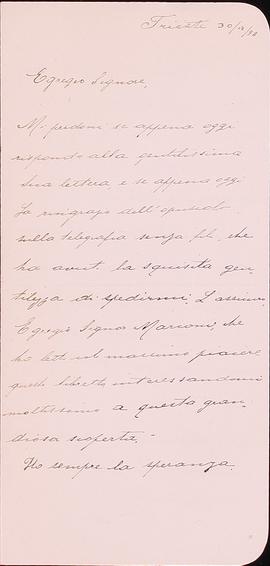 Trieste 30/12/98
Egregio Signore,
Mi perdoni se appena oggi
rispondo alla gentilissima
Sua lettera e se appena oggi
La ringrazio dell'opuscolo
sulla telegrafia senza fili, che
ha avuto la squisita gen-
tilezza di spedirmi. L'assicuro
Egregio Signor Marconi, che
ho letto col massimo piacere
quel libretto interessandomi
moltissimo a questa gran-
diosa scoperta.-
Ho sempre la speranza